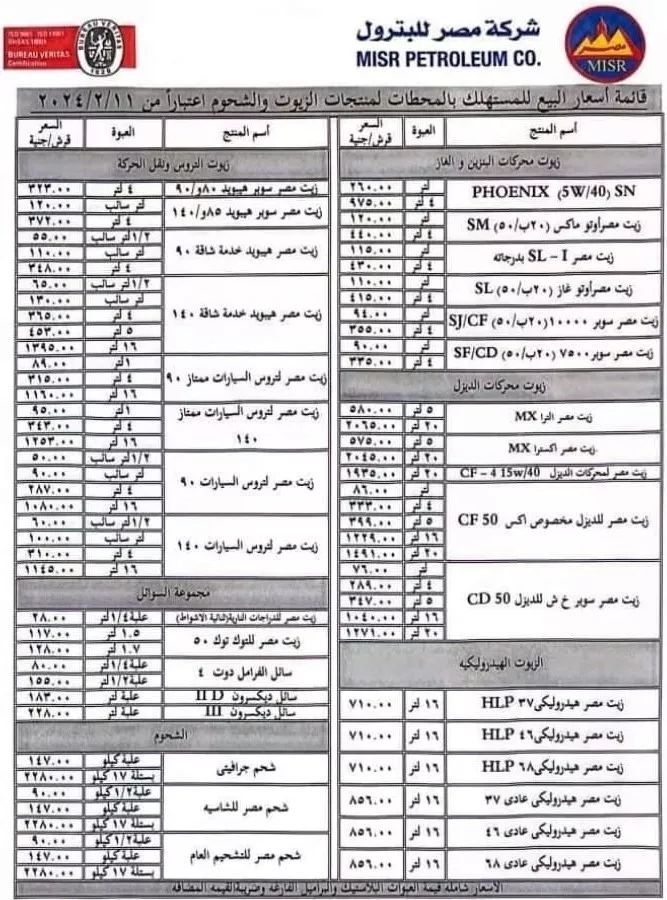 ISO 9001 ISO 14001
BUREAU VERITAS
Certification
BUREAU VERITAS
1828
شركة مصر للبترول
MISR PETROLEUM CO.
مصر
MISR
قائمة أسعار البيع للمستهلك بالمحطات لمنتجات الزيوت والشحوم اعتباراً من ٢٠٢٤/٢/١١
أسم المنتج العبوة السعر قرش/جنية
زيوت محركات البنزين و الغاز
PHOENIX (5W/40) SN لتر ٢٦٠.٠٠
٤ لتر ٩٧٥.٠٠
زيت مصراوتو ماكس (٢٠ب/٥٠) SM لتر ١٢٠.٠٠
٤ لتر ٤٤٠.٠٠
زيت مصر SL – I بدرجاته لتر ١١٥.٠٠
٤ لتر ٤٣٠.٠٠
زيت مصراوتو غاز (٢٠ب/٥٠) SL لتر ١١٠.٠٠
٤ لتر ٤١٥.٠٠
زيت مصر سوبر ١٠٠٠٠(٢٠ب/٥٠) SJ/CF لتر ٩٤.٠٠
٤ لتر ٣٥٥.٠٠
زيت مصر سوبر ٧٥٠٠(٢٠ب/٥٠) SF/CD لتر ٩٠.٠٠
٤ لتر ٣٣٥.٠٠
زيوت محركات الديزل
زيت مصر الترا MX ٥ لتر ٥٨٠.٠٠
٢٠ لتر ٢٠٦٥.٠٠
زيت مصر اكسترا MX ٥ لتر ٥٧٥.٠٠
٢٠ لتر ٢٠٤٥.٠٠
زيت مصر لمحركات الديزل CF – 4 15w/40 ٢٠ لتر ١٩٣٥.٠٠
زيت مصر للديزل مخصوص اكس CF 50 لتر ٨٦.٠٠
٤ لتر ٣٣٣.٠٠
٥ لتر ٣٩٩.٠٠
١٦ لتر ١٢٢٩.٠٠
٢٠ لتر ١٤٩١.٠٠
زيت مصر سوبر خ ش للديزل CD 50 لتر ٧٦.٠٠
٤ لتر ٢٨٩.٠٠
٥ لتر ٣٤٧.٠٠
١٦ لتر ١٠٤٠.٠٠
٢٠ لتر ١٢٧١.٠٠
الزيوت الهيدروليكيه
زيت مصر هيدروليكى٣٧ HLP ١٦ لتر ٧١٠.٠٠
زيت مصر هيدروليكى٤٦ HLP ١٦ لتر ٧١٠.٠٠
زيت مصر هيدروليكى٦٨ HLP ١٦ لتر ٧١٠.٠٠
زيت مصر هيدروليكى عادى ٣٧ ١٦ لتر ٨٥٦.٠٠
زيت مصر هيدروليكى عادى ٤٦ ١٦ لتر ٨٥٦.٠٠
زيت مصر هيدروليكى عادى ٦٨ ١٦ لتر ٨٥٦.٠٠
أسم المنتج العبوة السعر قرش/جنية
زيوت التروس ونقل الحركة
زيت مصر سوبر هيبويد ٨٠و/٩٠ ٤ لتر ٣٢٣.٠٠
زيت مصر سوبر هيبويد ٨٥و/١٤٠ لتر سائب ١٢٠.٠٠
٤ لتر ٣٧٢.٠٠
زيت مصر هيبويد خدمة شاقة ٩٠ ١/٢لتر سائب ٥٥.٠٠
لتر سائب ١١٠.٠٠
٤ لتر ٣٤٨.٠٠
زيت مصر هيبويد خدمة شاقة ١٤٠ ١/٢لتر سائب ٦٥.٠٠
لتر سائب ١٣٠.٠٠
٤ لتر ٣٦٥.٠٠
٥ لتر ٤٥٣.٠٠
١٦ لتر ١٣٩٥.٠٠
زيت مصر لتروس السيارات ممتاز ٩٠ ١لتر ٨٩.٠٠
٤ لتر ٣١٥.٠٠
١٦ لتر ١١٦٠.٠٠
زيت مصر لتروس السيارات ممتاز ١٤٠ ١لتر ٩٥.٠٠
٤ لتر ٣٤٣.٠٠
١٦ لتر ١٢٥٣.٠٠
زيت مصر لتروس السيارات ٩٠ ١/٢لتر سائب ٥٠.٠٠
لتر سائب ٩٠.٠٠
٤ لتر ٢٨٧.٠٠
١٦ لتر ١٠٨٠.٠٠
زيت مصر لتروس السيارات ١٤٠ ١/٢لتر سائب ٦٠.٠٠
لتر سائب ١٠٠.٠٠
٤ لتر ٣١٠.٠٠
١٦ لتر ١١٤٥.٠٠
مجموعة السوائل
زيت مصر للدراجات النارية(ثنائية الاشواط) علبة١/٤لتر ٢٨.٠٠
زيت مصر للتوك توك ٥٠ ١.٥ لتر ١١٧.٠٠
١.٧ لتر ١٢٨.٠٠
سائل الفرامل دوت ٤ علبة١/٤لتر ٨٠.٠٠
علبة١/٢لتر ١٥٥.٠٠
سائل ديكسرون II D علبة لتر ١٨٣.٠٠
سائل ديكسرون III علبة لتر ٢٢٨.٠٠
الشحوم
شحم جرافيتى علبة كيلو ١٤٧.٠٠
بستلة ١٧ كيلو ٢٢٨٠.٠٠
شحم مصر للشاسيه علبة١/٢كيلو ٩٠.٠٠
علبة كيلو ١٤٧.٠٠
بستلة ١٧ كيلو ٢٢٨٠.٠٠
شحم مصر للتشحيم العام علبة١/٢كيلو ٩٠.٠٠
علبة كيلو ١٤٧.٠٠
بستلة ١٧ كيلو ٢٢٨٠.٠٠
الاسعار شامله قيمة العبوات البلاستيك والبراميل الفارغه وضريبة القيمه المضافه